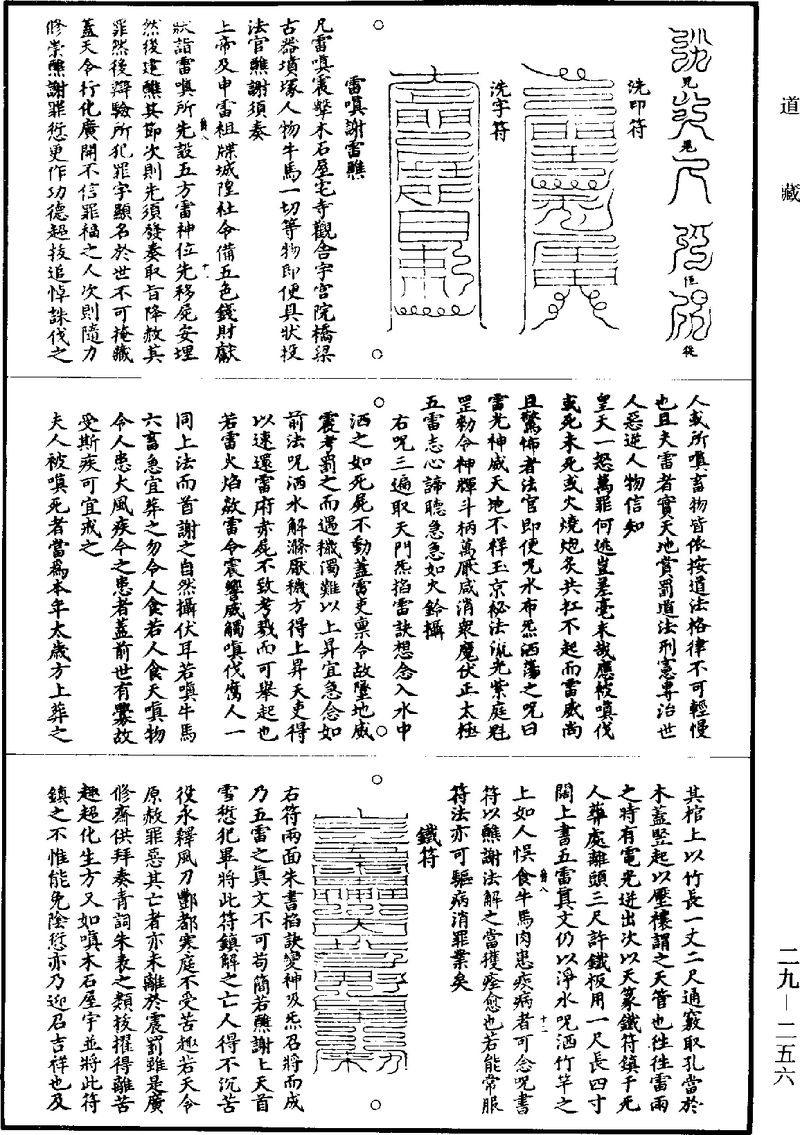 道藏
兒
光
臣
從
洗印符
洗字符
雷嗔謝雷醮
凡雷嗔震擊木石屋宅寺觀舍宇宮院橋梁
古器墳塚人物牛馬一切等物即便具狀投
法官醮謝須奏
上帝及申雷祖牒城隍社令備五色錢財獻
狀詣雷嗔所先設五方雷神位先移屍安埋
然後建醮其節次則先須發奏取旨降赦其
罪然後辯驗所犯罪字顯名於世不可掩藏
蓋天令行化廣開不信罪福之人次則隨力
修崇醮謝罪愆更作功德超拔追悼誅伐之
人或所嗔畜物皆依按道法格律不可輕慢
也且夫雷者實天地賞罰道法刑憲專治世
人惡逆人物信知
皇天一怒萬罪何逃豈差毫末哉應被嗔伐
或死未死或火燒炮炙共扛不起而雷威尚
且驚怖者法官即便呪水布炁洒蕩之呪曰
雷光神威天地不祥玉京秘法流光紫庭魁
罡勑令神輝斗柄萬厭咸消衆魔伏正太極
五雷志心諦聽急急如火鈴攝
右呪三遍取天門炁掐雷訣想念入水中
洒之如死屍不動蓋雷吏稟令故墜地威
震考罰之而遇穢濁難以上昇宜急念如
前法呪洒水解滌厭穢方得上昇天吏得
以速還雷府亦屍不致考戮而可舉起也
若雷火焰欻雷令震響威觸嗔伐傷人一
同上法而首謝之自然攝伏耳若嗔牛馬
六畜急宜葬之勿令人食若人食天嗔物
令人患大風疾今之患者蓋前世有釁故
受斯疾可宜戒之
夫人被嗔死者當爲本年太歲方上葬之
其棺上以竹長一丈二尺通竅取孔當於
木蓋竪起以壓禳謂之天管也往往雷雨
之時有電光迸出次以天篆鐵符鎮于死
人葬處離頭三尺許鐵板用一尺長四寸
闊上書五雷真文仍以淨水呪洒竹竿之
上如人悞食牛馬肉患疾病者可念呪書
符以醮謝法解之當獲痊愈也若能常服
符法亦可驅病消罪業矣
鐵符
右符兩面朱書掐訣變神及炁召將而成
乃五雷之真文不可苟簡若醮謝上天首
雪愆犯畢將此符鎮解之亡人得不沉苦
役永釋風刀酆都寒庭不受苦趣若天令
原赦罪惡其亡者亦未離於震罰雖是廣
修齋供拜奏青詞朱表之類拔擢得離苦
趣超化生方又如嗔木石屋宇並將此符
鎮之不惟能免陰愆亦乃迎召吉祥也及
二九－二五六